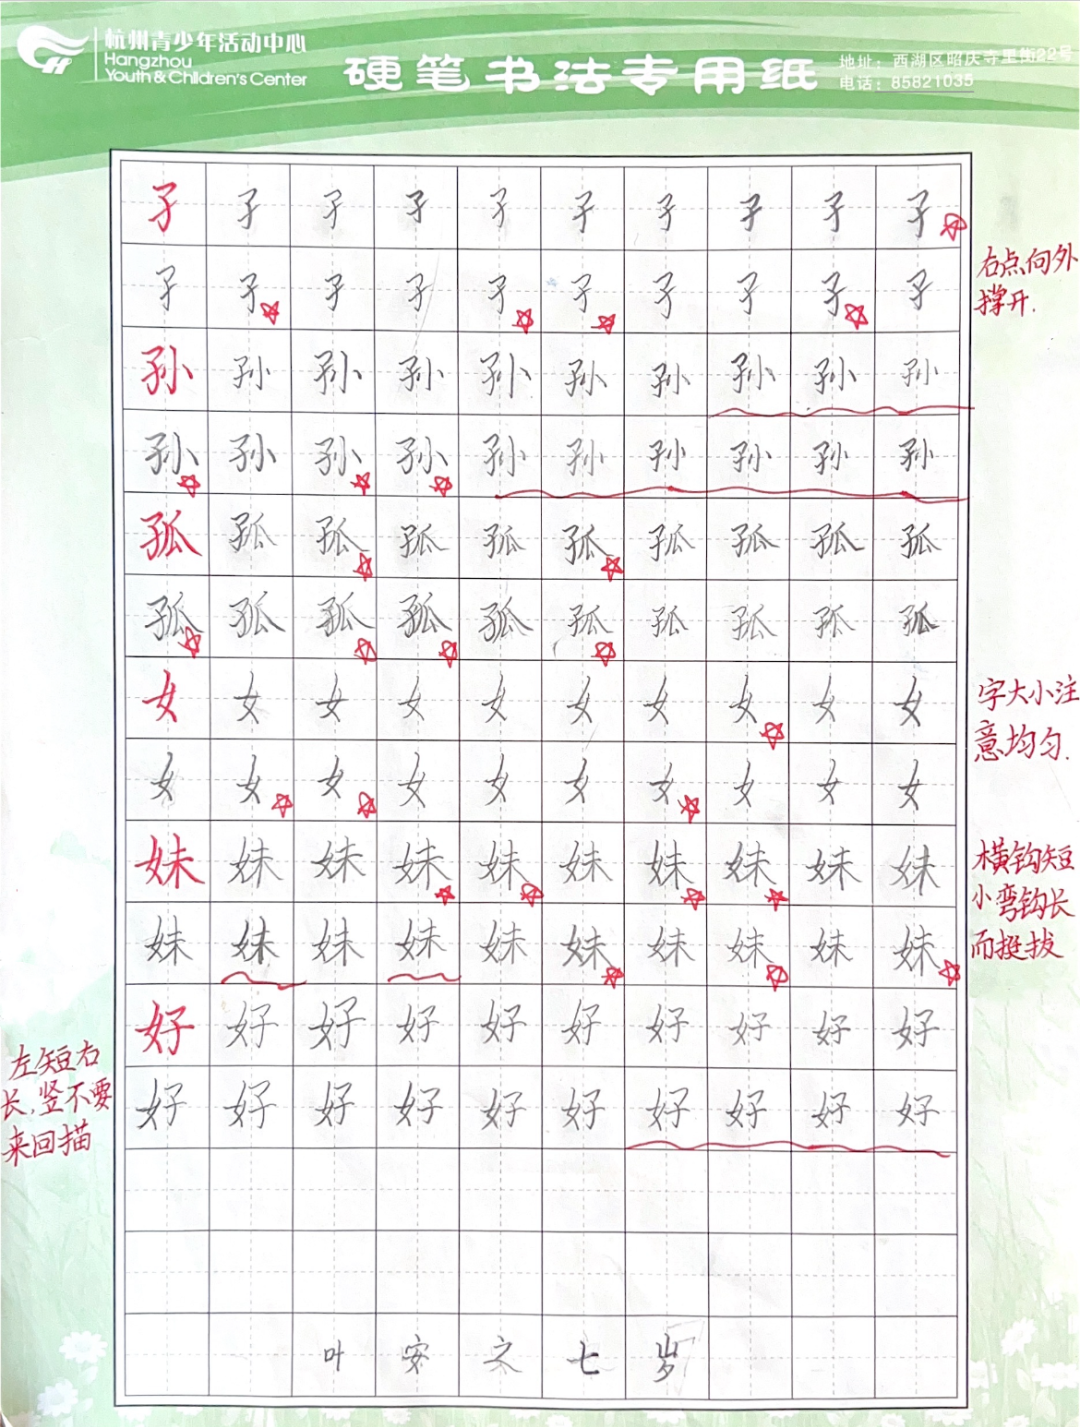 杭州青少年活动中心
Hangzhou
Youth & Children's Center
硬笔书法专用纸
地址：西湖区昭庆寺里街22号
电话：85821035
孑 孑 孑 孑 孑 孑 孑 孑 孑 孑
孑 孑 孑 孑 孑 孑 孑 孑 孑 孑
右点向外
撑开.
孙 孙 孙 孙 孙 孙 孙 孙 孙 孙
孙 孙 孙 孙 孙 孙 孙 孙 孙 孙
孤 孤 孤 孤 孤 孤 孤 孤 孤 孤
孤 孤 孤 孤 孤 孤 孤 孤 孤 孤
女 女 女 女 女 女 女 女 女 女
字大小注
意均匀.
女 女 女 女 女 女 女 女 女 女
妹 妹 妹 妹 妹 妹 妹 妹 妹 妹
横钩短
小弯钩长
而挺拔
妹 妹 妹 妹 妹 妹 妹 妹 妹 妹
好 好 好 好 好 好 好 好 好 好
左短右
长,竖不要
来回描
好 好 好 好 好 好 好 好 好 好
叶 安 之 七 岁